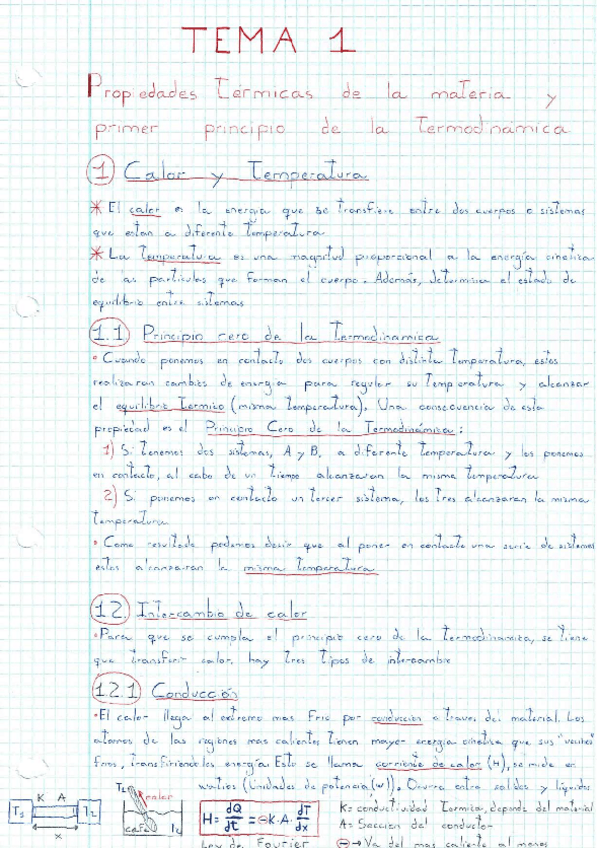 TEMA 1
Propiedades Térmicas de la materia y
primer principio de la Termodinámica
1 Calor y Temperatura
* El calor es la energía que se transfiere entre dos cuerpos o sistemas
que estan a diferente temperatura
* La Temperatura es una magnitud proporcional a la energía cinetica
de las particulas que forman el cuerpo. Además, determina el estado de
equilibrio entre sistemas
1.1 Principio cero de la Termodinamica
• Cuando ponemos en contacto dos cuerpos con distinta Temperatura, estos
realizaran cambios de energía para regular su Temperatura y alcanzar
el equilibrio Termico (misma temperatura). Una consecuencia de esta
propiedad es el Principio Cero de la Termodinámica:
1) Si Tenemos dos sistemas, A y B, a diferente temperatura y los ponemos
en contacto, al cabo de un Tiempo alcanzaran la misma temperatura
2) Si ponemos en contacto un tercer sistema, los Tres alcanzaran la misma
temperatura
• Como resultado podemos decir que al poner en contacto una serie de sistemas
estos alcanzaran la misma temperatura
1.2 Intercambio de calor
• Para que se cumpla el principio cero de la Termodinamica, se tiene
que transferir calor, hay tres Tipos de intercambio
1.2.1 Conducción
• El calor llega al extremo mas frio por conducción a traves del material. Los
atomos de las regiones mas calientes tienen mayor energía cinetica que sus "vecinos"
frios, transfiriendoles energía Esto se llama corriente de calor (H), se mide en
watios (Unidades de potencia (W)). Ocurre entre solidos y liquidos
K A
T1 T2
x
T2 calor
café T2
H = dQ/dt = -K·A· dT/dx
Ley de Fourier
K= conductividad Termica, depende del material
A= Seccion del conductor
⊖ → Va del mas caliente al menos